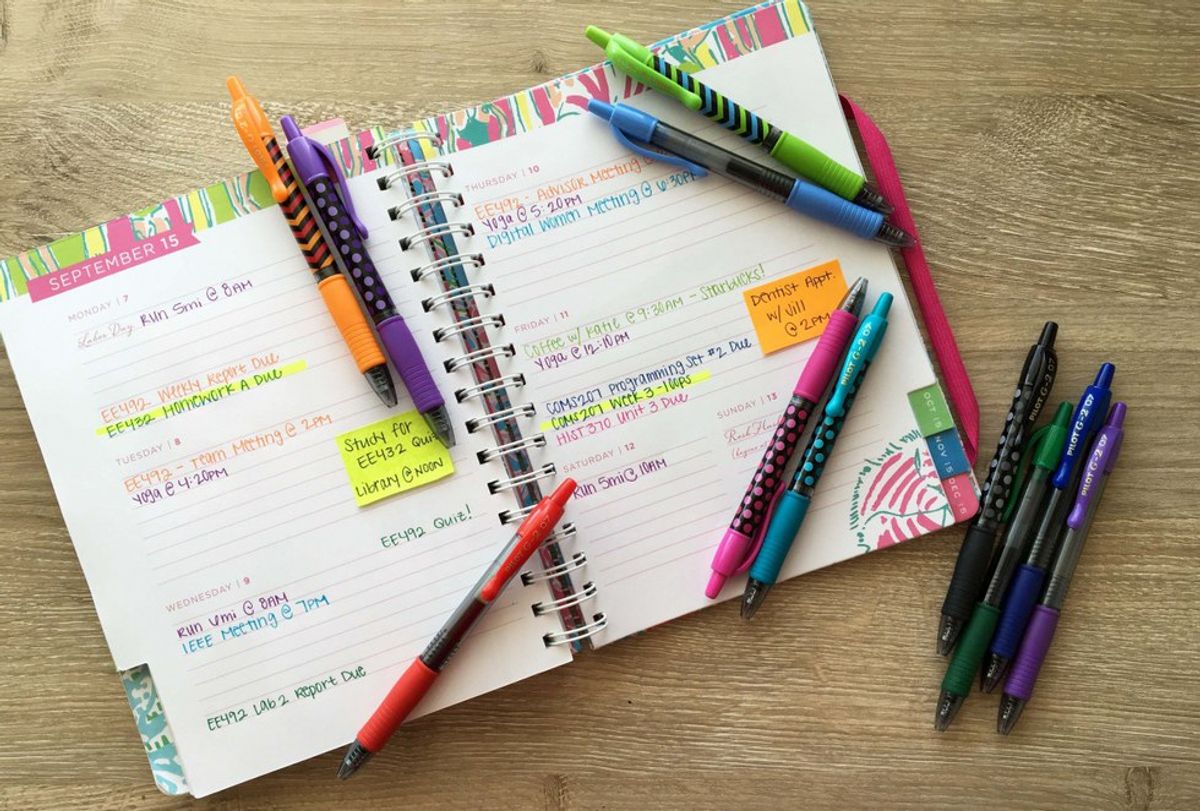 SEPTEMBER 15
MONDAY | 7
Labor Day
Run 5mi @ 8AM
EE492 Weekly Report Due
EE432 Homework A Due
TUESDAY | 8
EE492 - Team Meeting @ 2PM
Yoga @ 4:20PM
Study for
EE432 Quiz
Library @ Noon
EE492 Quiz!
WEDNESDAY | 9
Run 4mi @ 8AM
IEEE Meeting @ 7PM
EE492 Lab 2 Report Due
THURSDAY | 10
EE492 - Advisor Meeting @
Yoga @ 5:20PM
Digital Women Meeting @ 6:30PM
FRIDAY | 11
Coffee w/ Katie @ 9:30AM - Starbucks!
Yoga @ 12:10PM
Dentist Appt.
w/ Jill
@ 2PM
COMS207 Programming Set #2 Due
COMS207 Week 3 - 100ps
HIST370 Unit 3 Due
SATURDAY | 12
Run 5mi @ 10AM
SUNDAY | 13
OCT 15
NOV 15
DEC 15
PILOT G-2 07
PILOT G-2 07
PILOT G-2 07
PILOT G-2 07
PILOT G-2 07